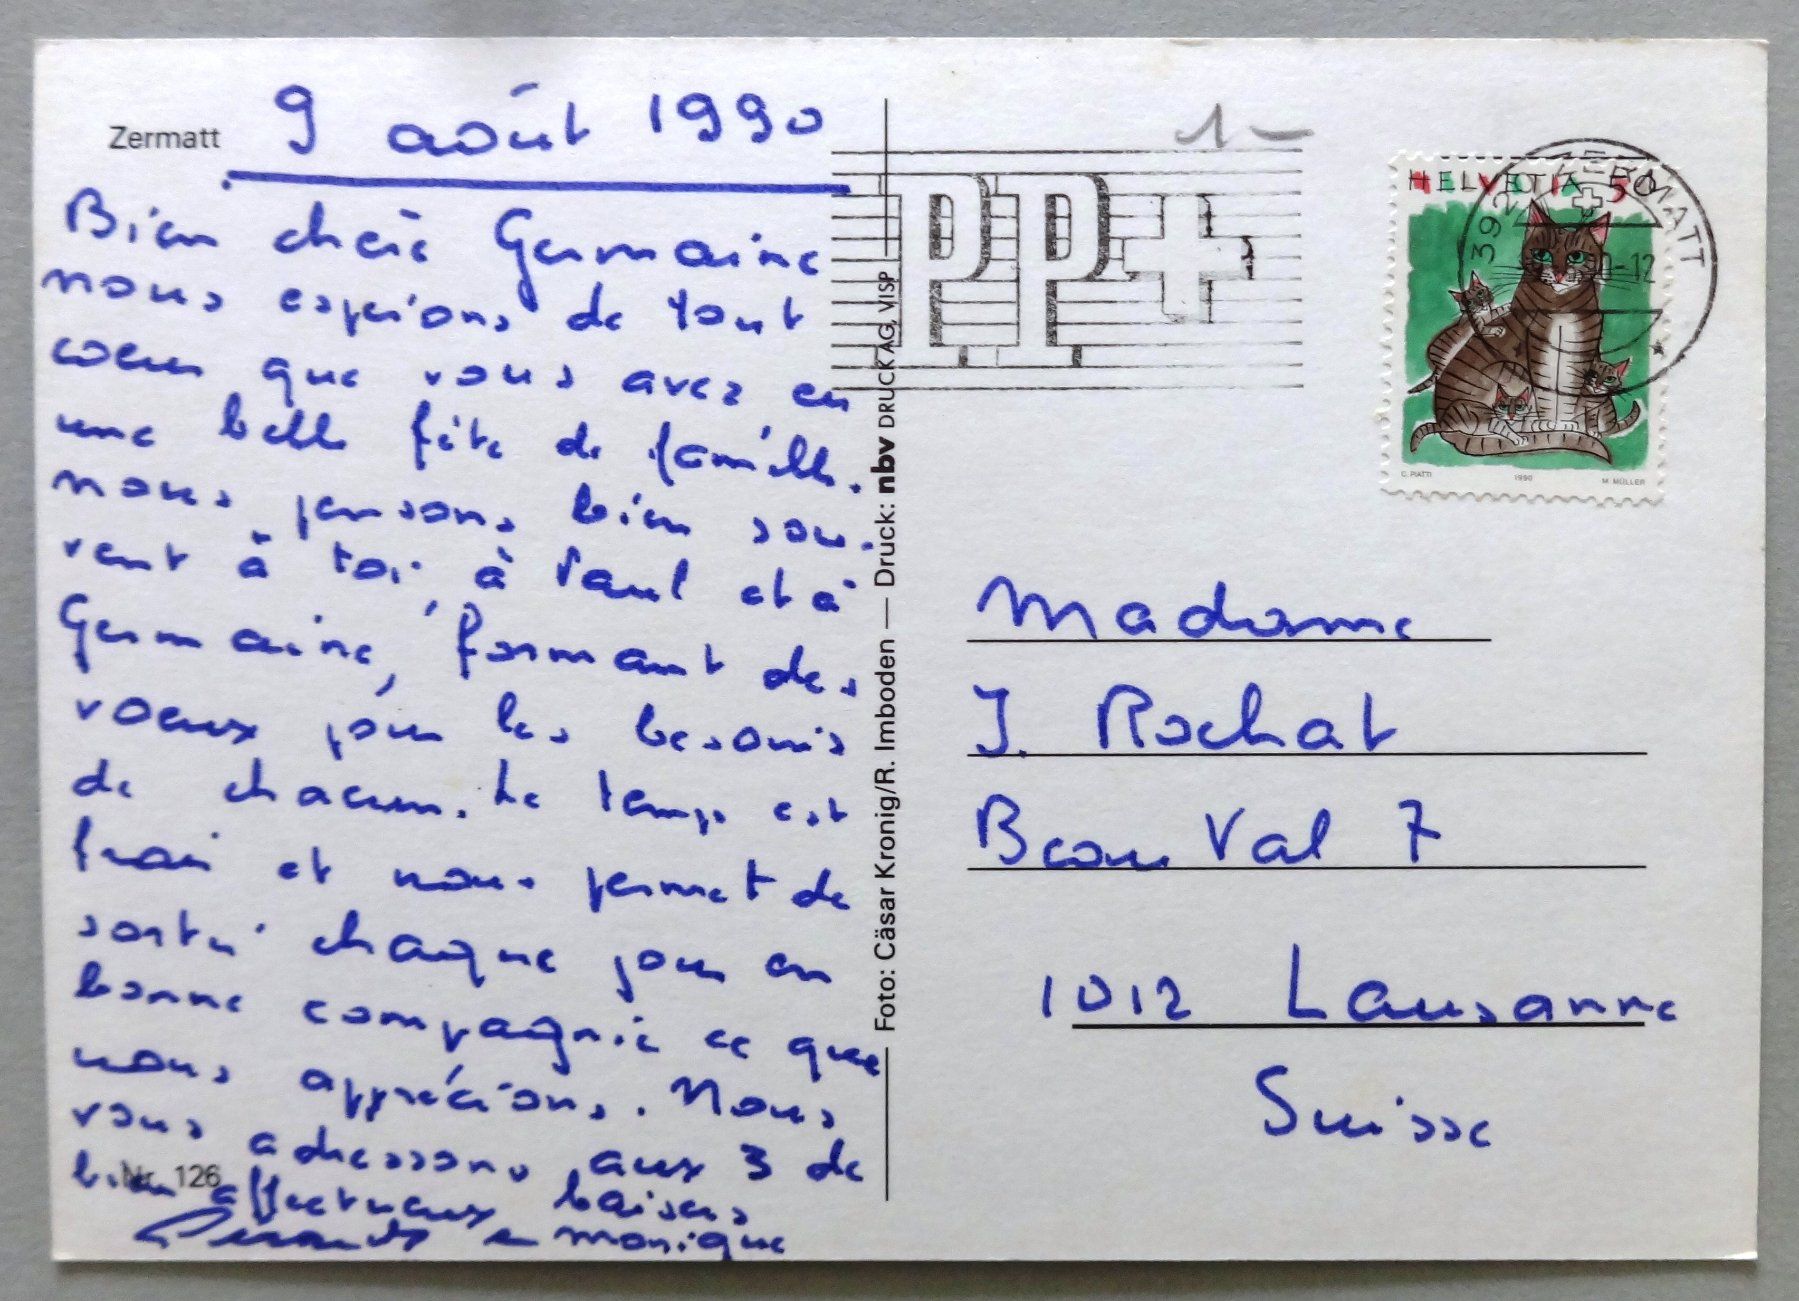 Zermatt
9 août 1990
Bien chère Germaine
nous espérons de tout
coeur que vous avez eu
une belle fête de famille.
nous pensons bien sou-
vent à toi, à Paul et à
Germaine, formant des
voeux pour les besoins
de chacun. Le temps est
frais et nous permet de
sortir chaque jour en
bonne compagnie ce que
nous apprécions. Nous
vous adressons aux 3 de
bien affectueux baisers
Nr. 126
e monique
Foto: Cäsar Kronig/R. Imboden — Druck: nbv DRUCK AG, VISP
1-
PP+
HELVETIA 50
C. PIATTI 1990 M. MÜLLER
392 ZERMATT
-12
Madame
J. Rochat
Beau Val 7
1012 Lausanne
Suisse